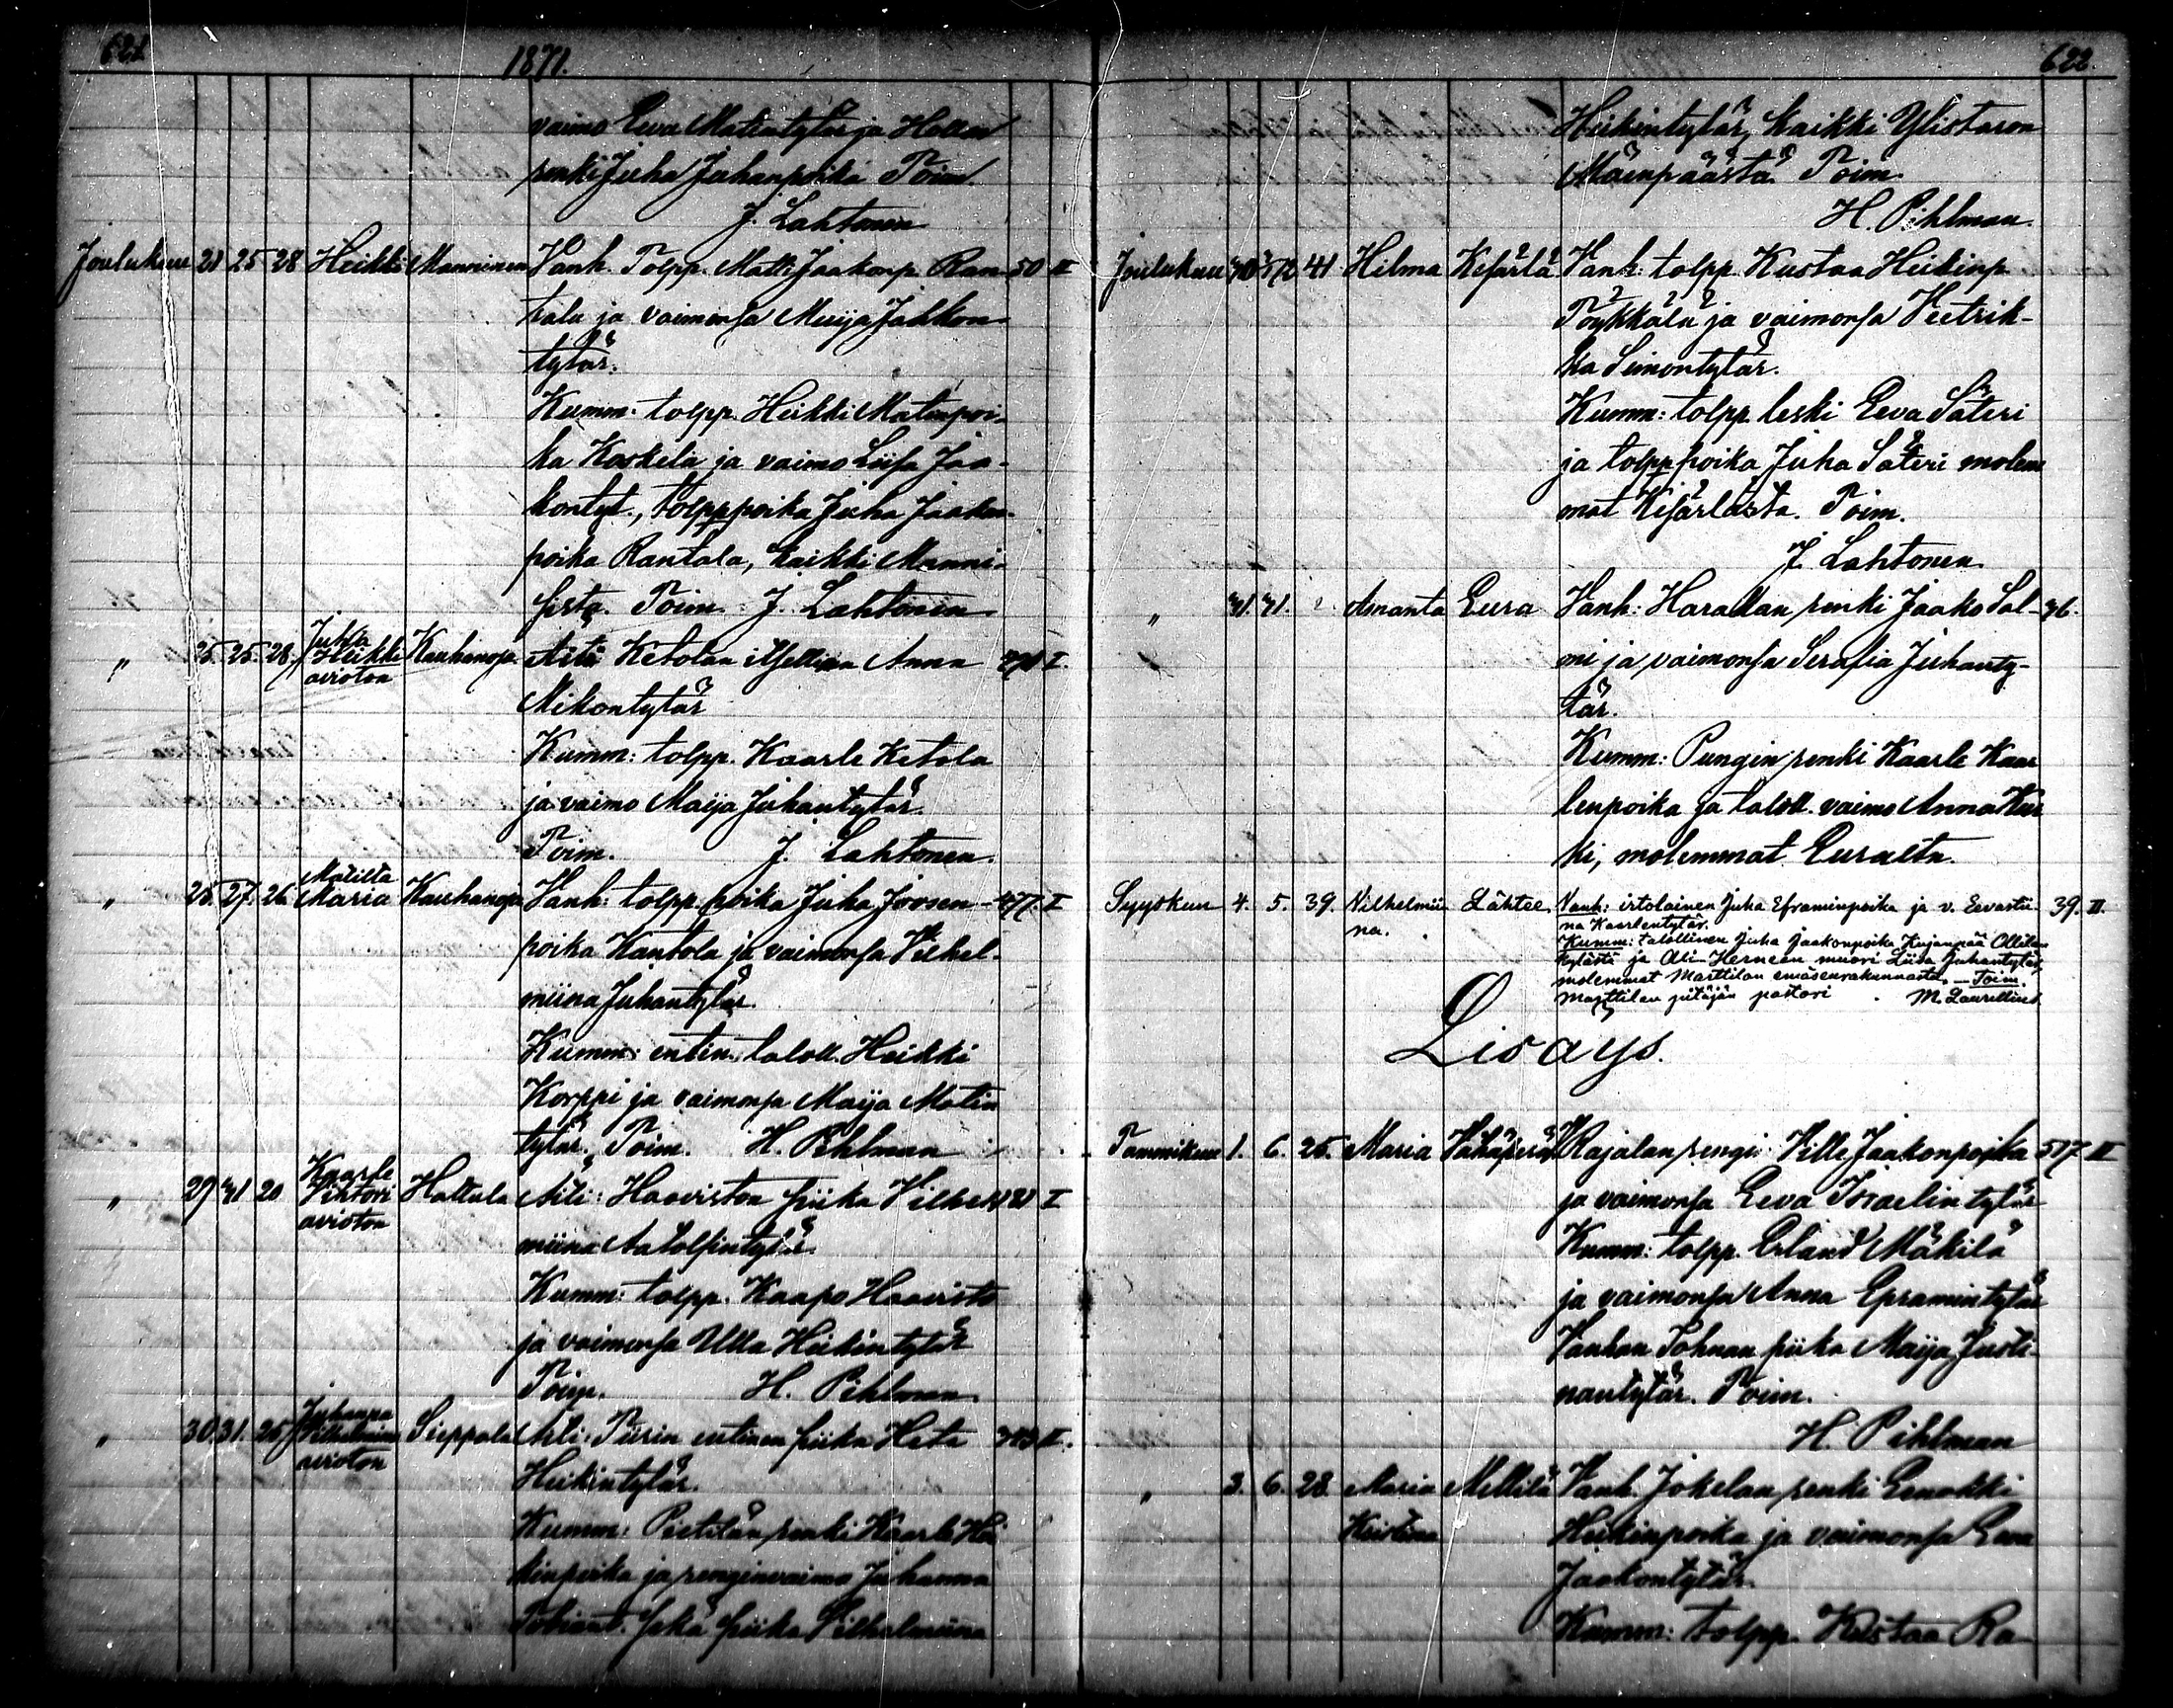 621. 1871.
vaimo Eeva Matintytär ja Hollan
renki Juha Juhanpoika Toim.
J. Lahtonen
Joulukuu 21 25 28 Heikki Manninen Vanh. Tolpp. Matti Jaakonp. Ran- 50 II
tala ja vaimonsa Maija Jakkon-
tytär.
Kumm: tolpp. Heikki Matinpoi-
ka Koskela ja vaimo Liisa Jaa-
kontyt., tolpp poika Juha Jaakon-
poika Rantala, kaikki Manni-
sista. Toim. J. Lahtonen
" 25. 25. 28. Juhka Heikki avioton Kauhanoja Äiti Ketolan itsellinen Anna I.
Mikontytär
Kumm: tolpp. Kaarle Ketola
ja vaimo Maija Juhantytär.
Toim. J. Lahtonen.
Matilta
" 25. 27. 26. Maria Kauhanoja Vanh: tolpp poika Juha Joosen- 477. I
poika Kantola ja vaimonsa Vilhel-
miina Juhantytär.
Kumm: entin. taloll. Heikki
Korppi ja vaimonsa Maija Matin
tytär. Toim. H. Pihlman
" 29 31 20 Kaarle Vihtori avioton Haltula Äiti: Haaviston piika Vilhel- I
miina Aatolfintytär.
Kumm: tolpp. Kaapo Haavisto
ja vaimonsa Ulla Heikintytär
Toim. H. Pihlman
" 30 31. 25 Juhanna Vilhelmiina avioton Sieppala Äiti: Piirin entinen piika Heta II.
Heikintytär.
Kumm: Pietilän renki Kaarle Hei
kinpoika ja renginvaimo Juhanna
Tobiant. sekä piika Vilhelmiina
622.
Heikintytär, kaikki Ylistaron
Mäenpäästä. Toim.
H. Pihlman.
Joulukuu 41 Hilma Kesärlä Vanh: tolpp. Kustaa Heikinp.
Töykkälä ja vaimonsa Veetrik-
ka Simontytär.
Kumm: tolpp. leski Eeva Säteri
ja tolpp poika Juha Säteri molem
mat Kesärlästä. Toim.
J. Lahtonen.
" 31. 31. Amanta Eura Vanh: Harallan renki Jaako Sal- 36.
mi ja vaimonsa Serafia Juhanty-
tär.
Kumm: Pungin renki Kaarle Kaar
lenpoika ja taloll. vaimo Anna Kur
ki, molemmat Euralta.
Syyskuu 4. 5. 39. Vilhelmii- Lähtee. Vanh: irtolainen Juha Eframinpoika ja v. Eevastii- 39. II.
na. na Kaarlentytär.
Kumm: talollinen Juha Jaakonpoika Kujanpää Ollilan
kylästä ja Ali-Herneen muori Liisa Juhantytär,
molemmat Marttilan emäseurakunnasta. — Toim.
Marttilan pitäjän pastori M. Laurellius
Lisäys.
Tammikuu 1. 6. 25. Maria Vähäperä Rajalan rengi Ville Jaakonpoika 517 II
ja vaimonsa Eeva Israelintytär
Kumm: tolpp. Erland Mäkilä
ja vaimonsa Anna Epramintytär
Vanhan Johnan piika Maija Justi-
nantytär. Toim.
H. Pihlman
" 3. 6. 28. Maria Mellilä Vanh. Jokelan renki Eenokki
Kristiina Heikinpoika ja vaimonsa Eeva
Jaakontytär.
Kumm: tolpp. Kustaa Ra-